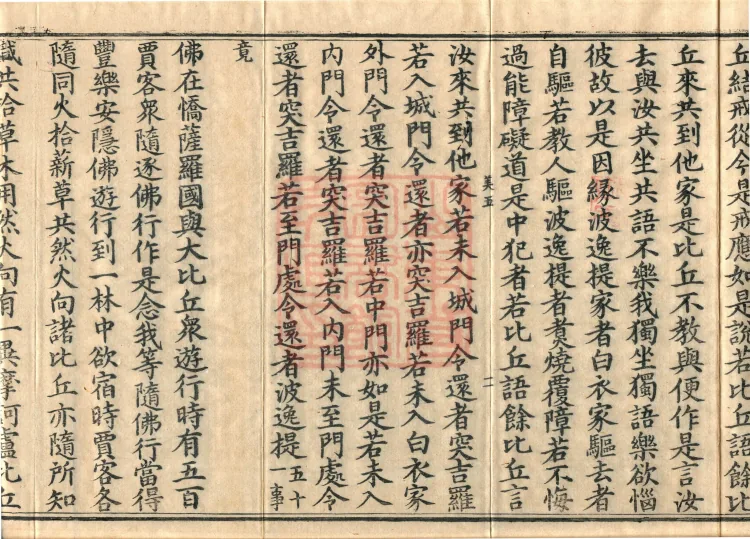 丘結戒從今是戒應如是說若比丘語餘比
丘來共到他家是比丘不教與便作是言汝
去與汝共坐共語不樂我獨坐獨語樂欲惱
彼故以是因緣波逸提家者白衣家驅去者
自驅若教人驅波逸提者煑燒覆障若不悔
過能障礙道是中犯者若比丘語餘比丘言
美五 二
汝來共到他家若未入城門令還者突吉羅
若入城門令還者亦突吉羅若未入白衣家
外門令還者突吉羅若中門亦如是若未入
內門令還者突吉羅若入內門未至門處令
還者突吉羅若至門處令還者波逸提五十一事
竟
佛在憍薩羅國與大比丘眾遊行時有五百
賈客眾隨逐佛行作是念我等隨佛行當得
豐樂安隱佛遊行到一林中欲宿時賈客各
隨同火拾薪草共然火向諸比丘亦隨所知
識共拾草木用然火向有一異摩訶盧比丘